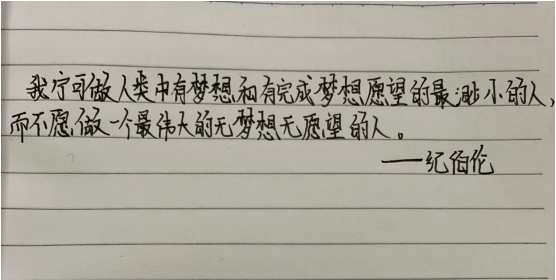 我宁可做人类中有梦想和有完成梦想愿望的最渺小的人，
而不愿做一个最伟大的无梦想无愿望的人。
——纪伯伦